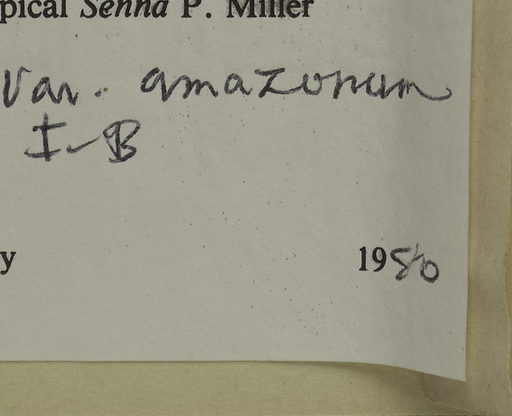 pical Senna P. Miller
var. amazonum
I-B
y 1980